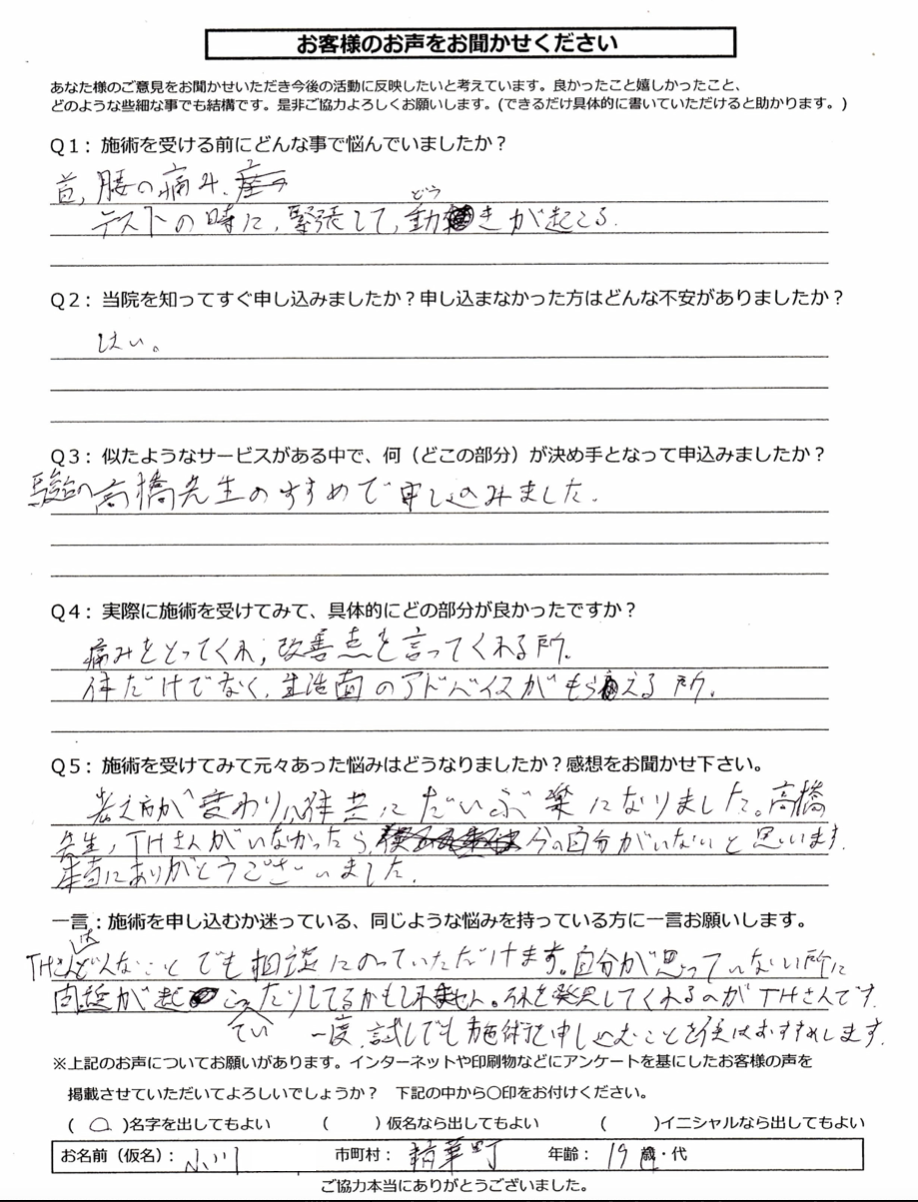 お客様のお声をお聞かせください
あなた様のご意見をお聞かせいただき今後の活動に反映したいと考えています。良かったこと嬉しかったこと、
どのような些細な事でも結構です。是非ご協力よろしくお願いします。(できるだけ具体的に書いていただけると助かります。)
Q1：施術を受ける前にどんな事で悩んでいましたか？
首,腰の痛み、
テストの時に,緊張して,動きが起こる.
どう
Q2：当院を知ってすぐ申し込みましたか？申し込まなかった方はどんな不安がありましたか？
はい。
Q3：似たようなサービスがある中で、何（どこの部分）が決め手となって申込みましたか？
高橋先生のすすめで申し込みました.
Q4：実際に施術を受けてみて、具体的にどの部分が良かったですか？
痛みをとってくれ,改善点を言ってくれる所.
体だけでなく,生活面のアドバイスがもらえる所.
Q5：施術を受けてみて元々あった悩みはどうなりましたか？感想をお聞かせ下さい。
考え方が変わり,心体共にだいぶ楽になりました。高橋
先生,THさんがいなかったら,今の自分がいないと思います.
本当にありがとうございました.
一言：施術を申し込むか迷っている、同じような悩みを持っている方に一言お願いします。
THさんはどんなことでも相談にのっていただけます。自分が思っていない所に
問題が起こっていたりしてるかもしれません。それを発見してくれるのがTHさんです.
一度,試しでも施術を申し込むことを僕はおすすめします.
※上記のお声についてお願いがあります。インターネットや印刷物などにアンケートを基にしたお客様の声を
掲載させていただいてよろしいでしょうか？　下記の中から〇印をお付けください。
(　○　)名字を出してもよい　(　　)仮名なら出してもよい　(　　)イニシャルなら出してもよい
お名前（仮名）：小川　市町村：精華町　年齢：19歳・代
ご協力本当にありがとうございました。